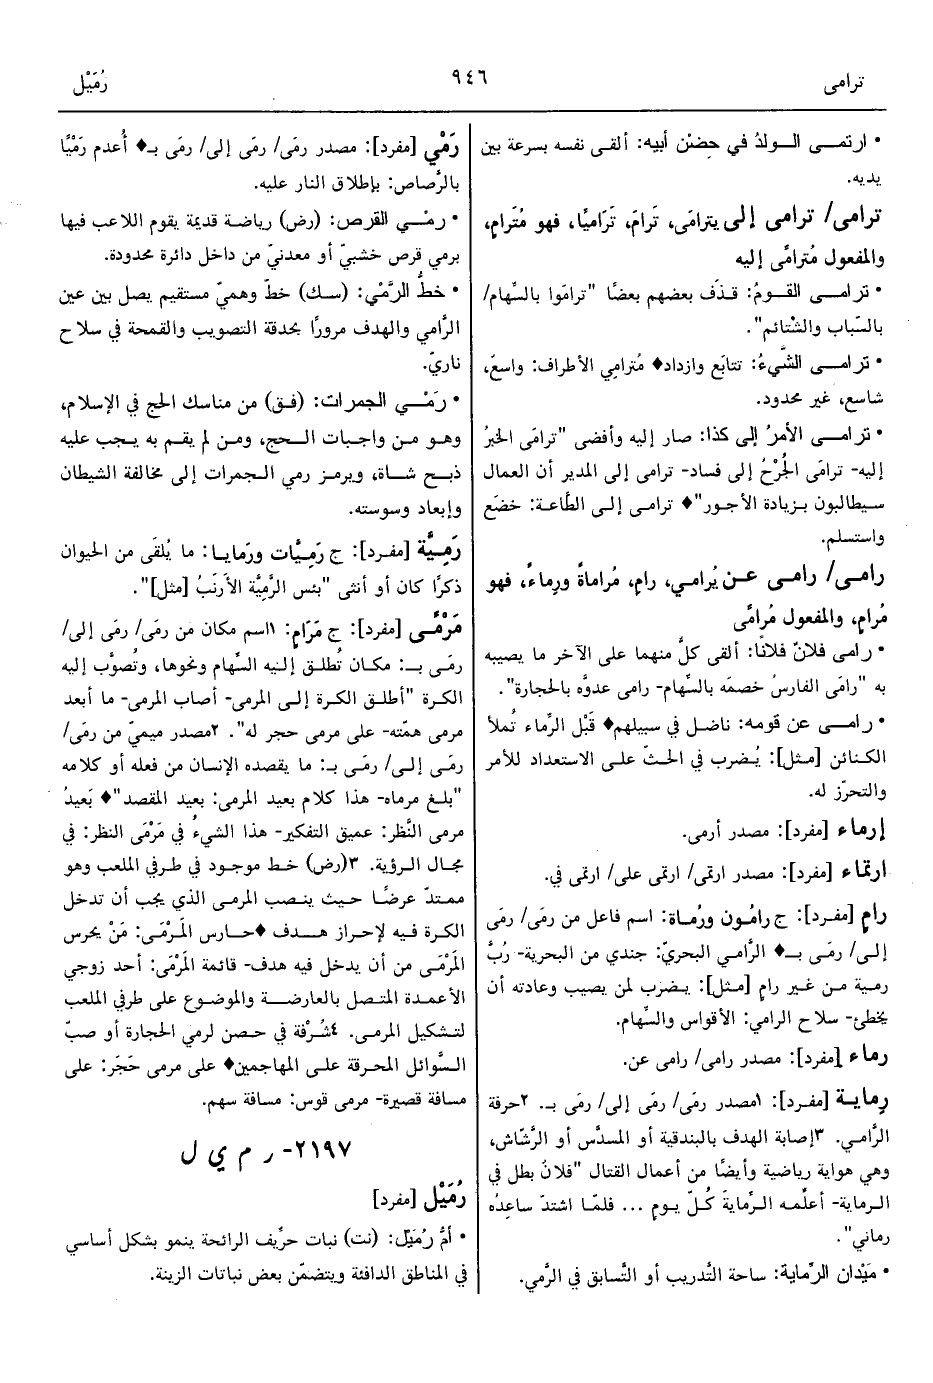 ترامى
٩٤٦
رُمَيْل
• ارتمـــى الـــولدُ في حِضْن أبيه: ألقى نفسه بسرعة بين
يديه.
ترامى/ ترامى إلى يترامَى، تَرامَ، تَرَاميًا، فهو مُتَرامٍ،
والمفعول مُترامًى إليه
• ترامـــى القـــومُ: قـذَف بعضهم بعضًا "ترامَوا بالسِّهام/
بالسِّباب والشَّتائم".
• ترامـــى الشَّيءُ: تتابَع وازداد♦ مُترامِي الأطراف: واسعٌ،
شاسع، غير محدود.
• ترامـــى الأمرُ إلى كذا: صار إليه وأفضى "ترامَى الخبرُ
إليه- ترامَى الجُرْحُ إلى فساد- ترامى إلى المدير أن العمال
سيطالبون بزيادة الأجور"♦ ترامى إلى الطَّاعة: خضَع
واستسلم.
رامى/ رامى عـن يُرامي، رامِ، مُراماةً ورِماءً، فهو
مُرامٍ، والمفعول مُرامًى
• رامى فلانٌ فلانًا: ألقى كلٌّ منهما على الآخر ما يصيبه
به "رامَى الفارسُ خصمَه بالسِّهام- رامى عدوَّه بالحجارة".
• رامـــى عن قومه: ناضل في سبيلهم♦ قَبْل الرِّماء تُملأ
الكنائن [مثل]: يُضرب في الحثّ على الاستعداد للأمر
والتحرّز له.
إرماء [مفرد]: مصدر أرمى.
ارتماء [مفرد]: مصدر ارتمى/ ارتمى على/ ارتمى في.
رامٍ [مفرد]: ج رامُون ورُماة: اسم فاعل من رمَى/ رمَى
إلى/ رمَى بـ♦ الرَّامي البحريّ: جندي من البحرية- رُبَّ
رمية من غير رامٍ [مثل]: يضرب لمن يصيب وعادته أن
يخطئ- سلاح الرامي: الأقواس والسِّهام.
رماء [مفرد]: مصدر رامى/ رامى عن.
رماية [مفرد]: ١مصدر رمَى/ رمَى إلى/ رمَى بـ. ٢حرفة
الرَّامي. ٣إصابة الهدف بالبندقية أو المسدَّس أو الرَّشّاش،
وهي هواية رياضية وأيضًا من أعمال القتال "فلانٌ بطل في
الرماية- أعلِّمه الرِّمايةَ كُلّ يومٍ ... فلمّا اشتدّ ساعِدُه
رماني".
• مَيْدان الرِّماية: ساحة التَّدريب أو التَّسابق في الرَّمي.
رَمْي [مفرد]: مصدر رمَى/ رمَى إلى/ رمَى بـ♦ أُعدم رَمْيًا
بالرَّصاص: بإطلاق النار عليه.
• رمْـــي القرص: (رض) رياضة قديمة يقوم اللاعب فيها
برمي قرص خشبيّ أو معدنيّ من داخل دائرة محدودة.
• خطُّ الرَّمْي: (سك) خطّ وهميّ مستقيم يصل بين عين
الرَّامي والهدف مرورًا بحدقة التصويب والقمحة في سلاح
ناريّ.
• رَمْـــي الجمرات: (فق) من مناسك الحج في الإسلام،
وهـو مـن واجبات الـحج، ومـن لم يقم به يجب عليه
ذبـح شـاة، ويرمز رمي الـجمرات إلى مخالفة الشيطان
وإبعاد وسوسته.
رَمِيَّة [مفرد]: ج رَمِيَّات ورَمايا: ما يُلقَى من الحيوان
ذكرًا كان أو أنثى "بئس الرَّمِيَّة الأرنبُ [مثل]".
مَرْمًى [مفرد]: ج مَرَامٍ: ١اسم مكان من رمَى/ رمَى إلى/
رمَى بـ: مكان تُطلق إليه السِّهام ونحوها، وتُصوَّب إليه
الكرة "أطلق الكرة إلى المرمى- أصاب المرمى- ما أبعد
مرمى همّته- على مرمى حجر له". ٢مصدر ميميّ من رمَى/
رمَى إلى/ رمَى بـ: ما يقصده الإنسان من فعله أو كلامه
"بلغ مرماه- هذا كلام بعيد المرمى: بعيد المقصد"♦ بَعيدُ
مرمى النَّظر: عميق التفكير- هذا الشيءُ في مَرْمَى النظر: في
مجال الرؤية. ٣(رض) خط موجود في طرفي الملعب وهو
ممتدّ عرضًا حيث ينصب المرمى الذي يجب أن تدخل
الكرة فيه لإحراز هـــدف ♦حـارس المَرْمَى: مَنْ يحرس
المَرْمَى من أن يدخل فيه هدف- قائمة المَرْمَى: أحد زوجي
الأعمدة المتصل بالعارضـــة والموضوع على طرفي الملعب
لتشكيل المرمى. ٤شُرْفة في حصن لرمي الحجارة أو صبّ
السَّوائل المحرقة على المهاجمين♦ على مرمى حَجَر: على
مسافة قصيرة- مرمى قوس: مسافة سهم.
٢١٩٧- ر م ي ل
رُمَيْل [مفرد]
• أمُّ رُمَيْل: (نت) نبات حرِّيف الرائحة ينمو بشكل أساسي
في المناطق الدافئة ويتضمّن بعض نباتات الزينة.